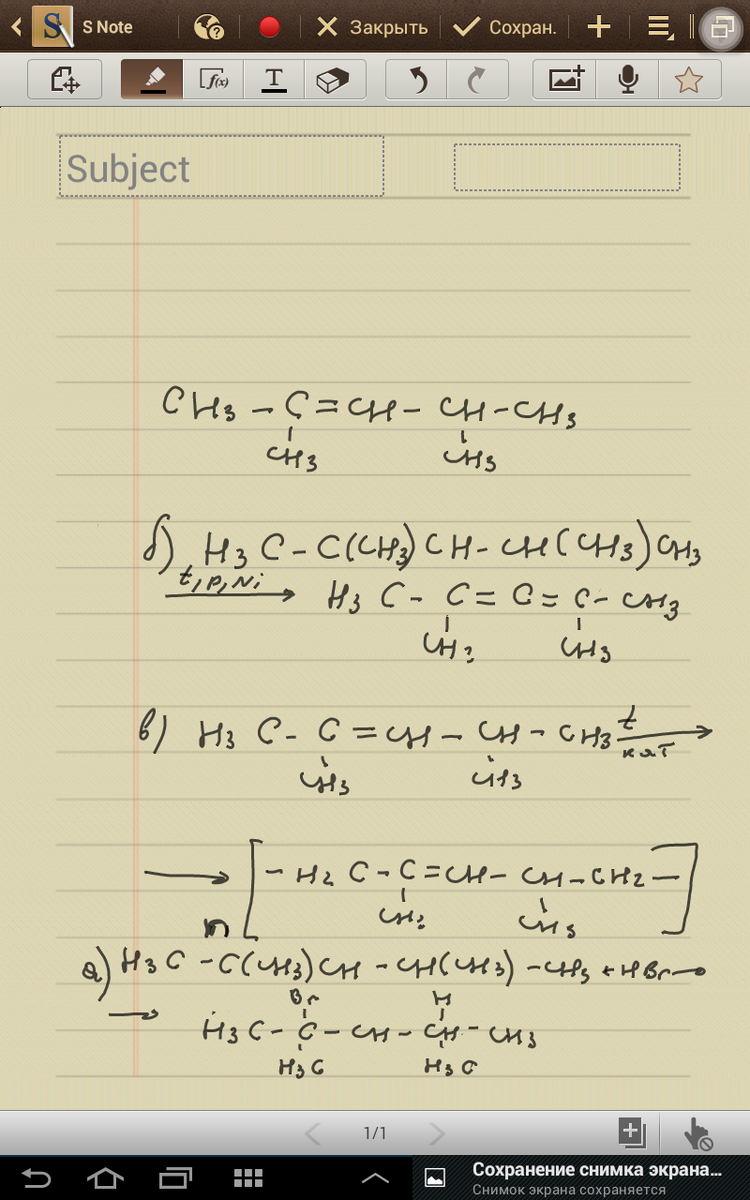 S Note Закрыть Сохран.
f(x) T
Subject
CH3 - C = CH - CH - CH3
CH3 CH3
б) H3C - C(CH3)CH - CH(CH3)CH3
t, p, Ni → H3C - C = C = C - CH3
CH3 CH3
в) H3C - C = CH - CH - CH3 t →
кат
CH3 CH3
→ [- H2C - C = CH - CH - CH2 -]
n CH3 CH3
а) H3C - C(CH3)CH - CH(CH3) - CH3 + HBr →
Br H
→ H3C - C - CH - CH - CH3
H3C H3C
1/1
Сохранение снимка экрана...
Снимок экрана сохраняется